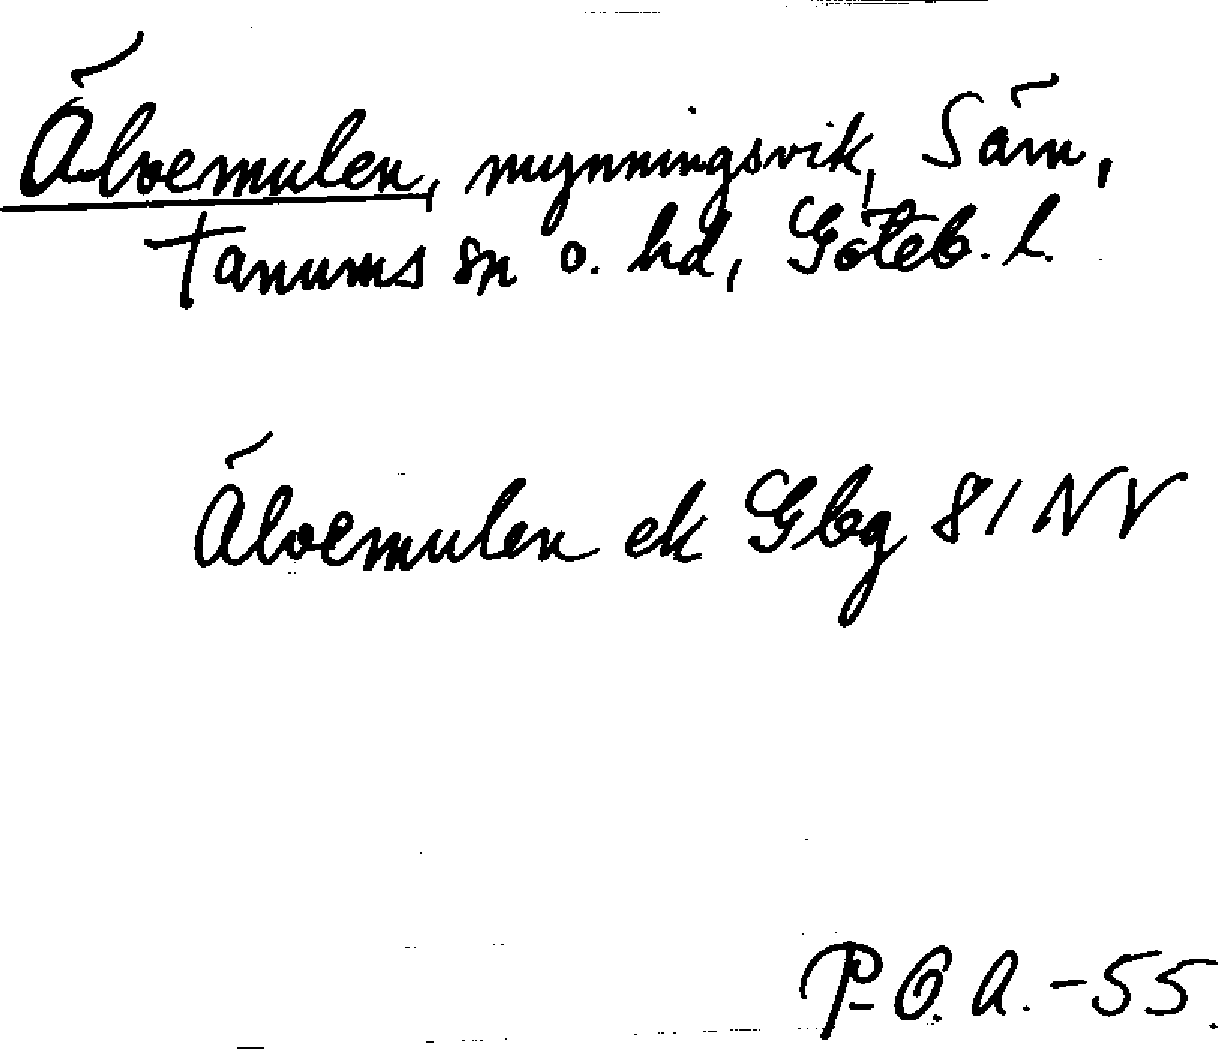 Älvemulen, mynningsvik, Säm,
Tanums sn o. hd, Göteb. l.
Älvemulen ek Gbg 81 NV
P-O. A. -55.